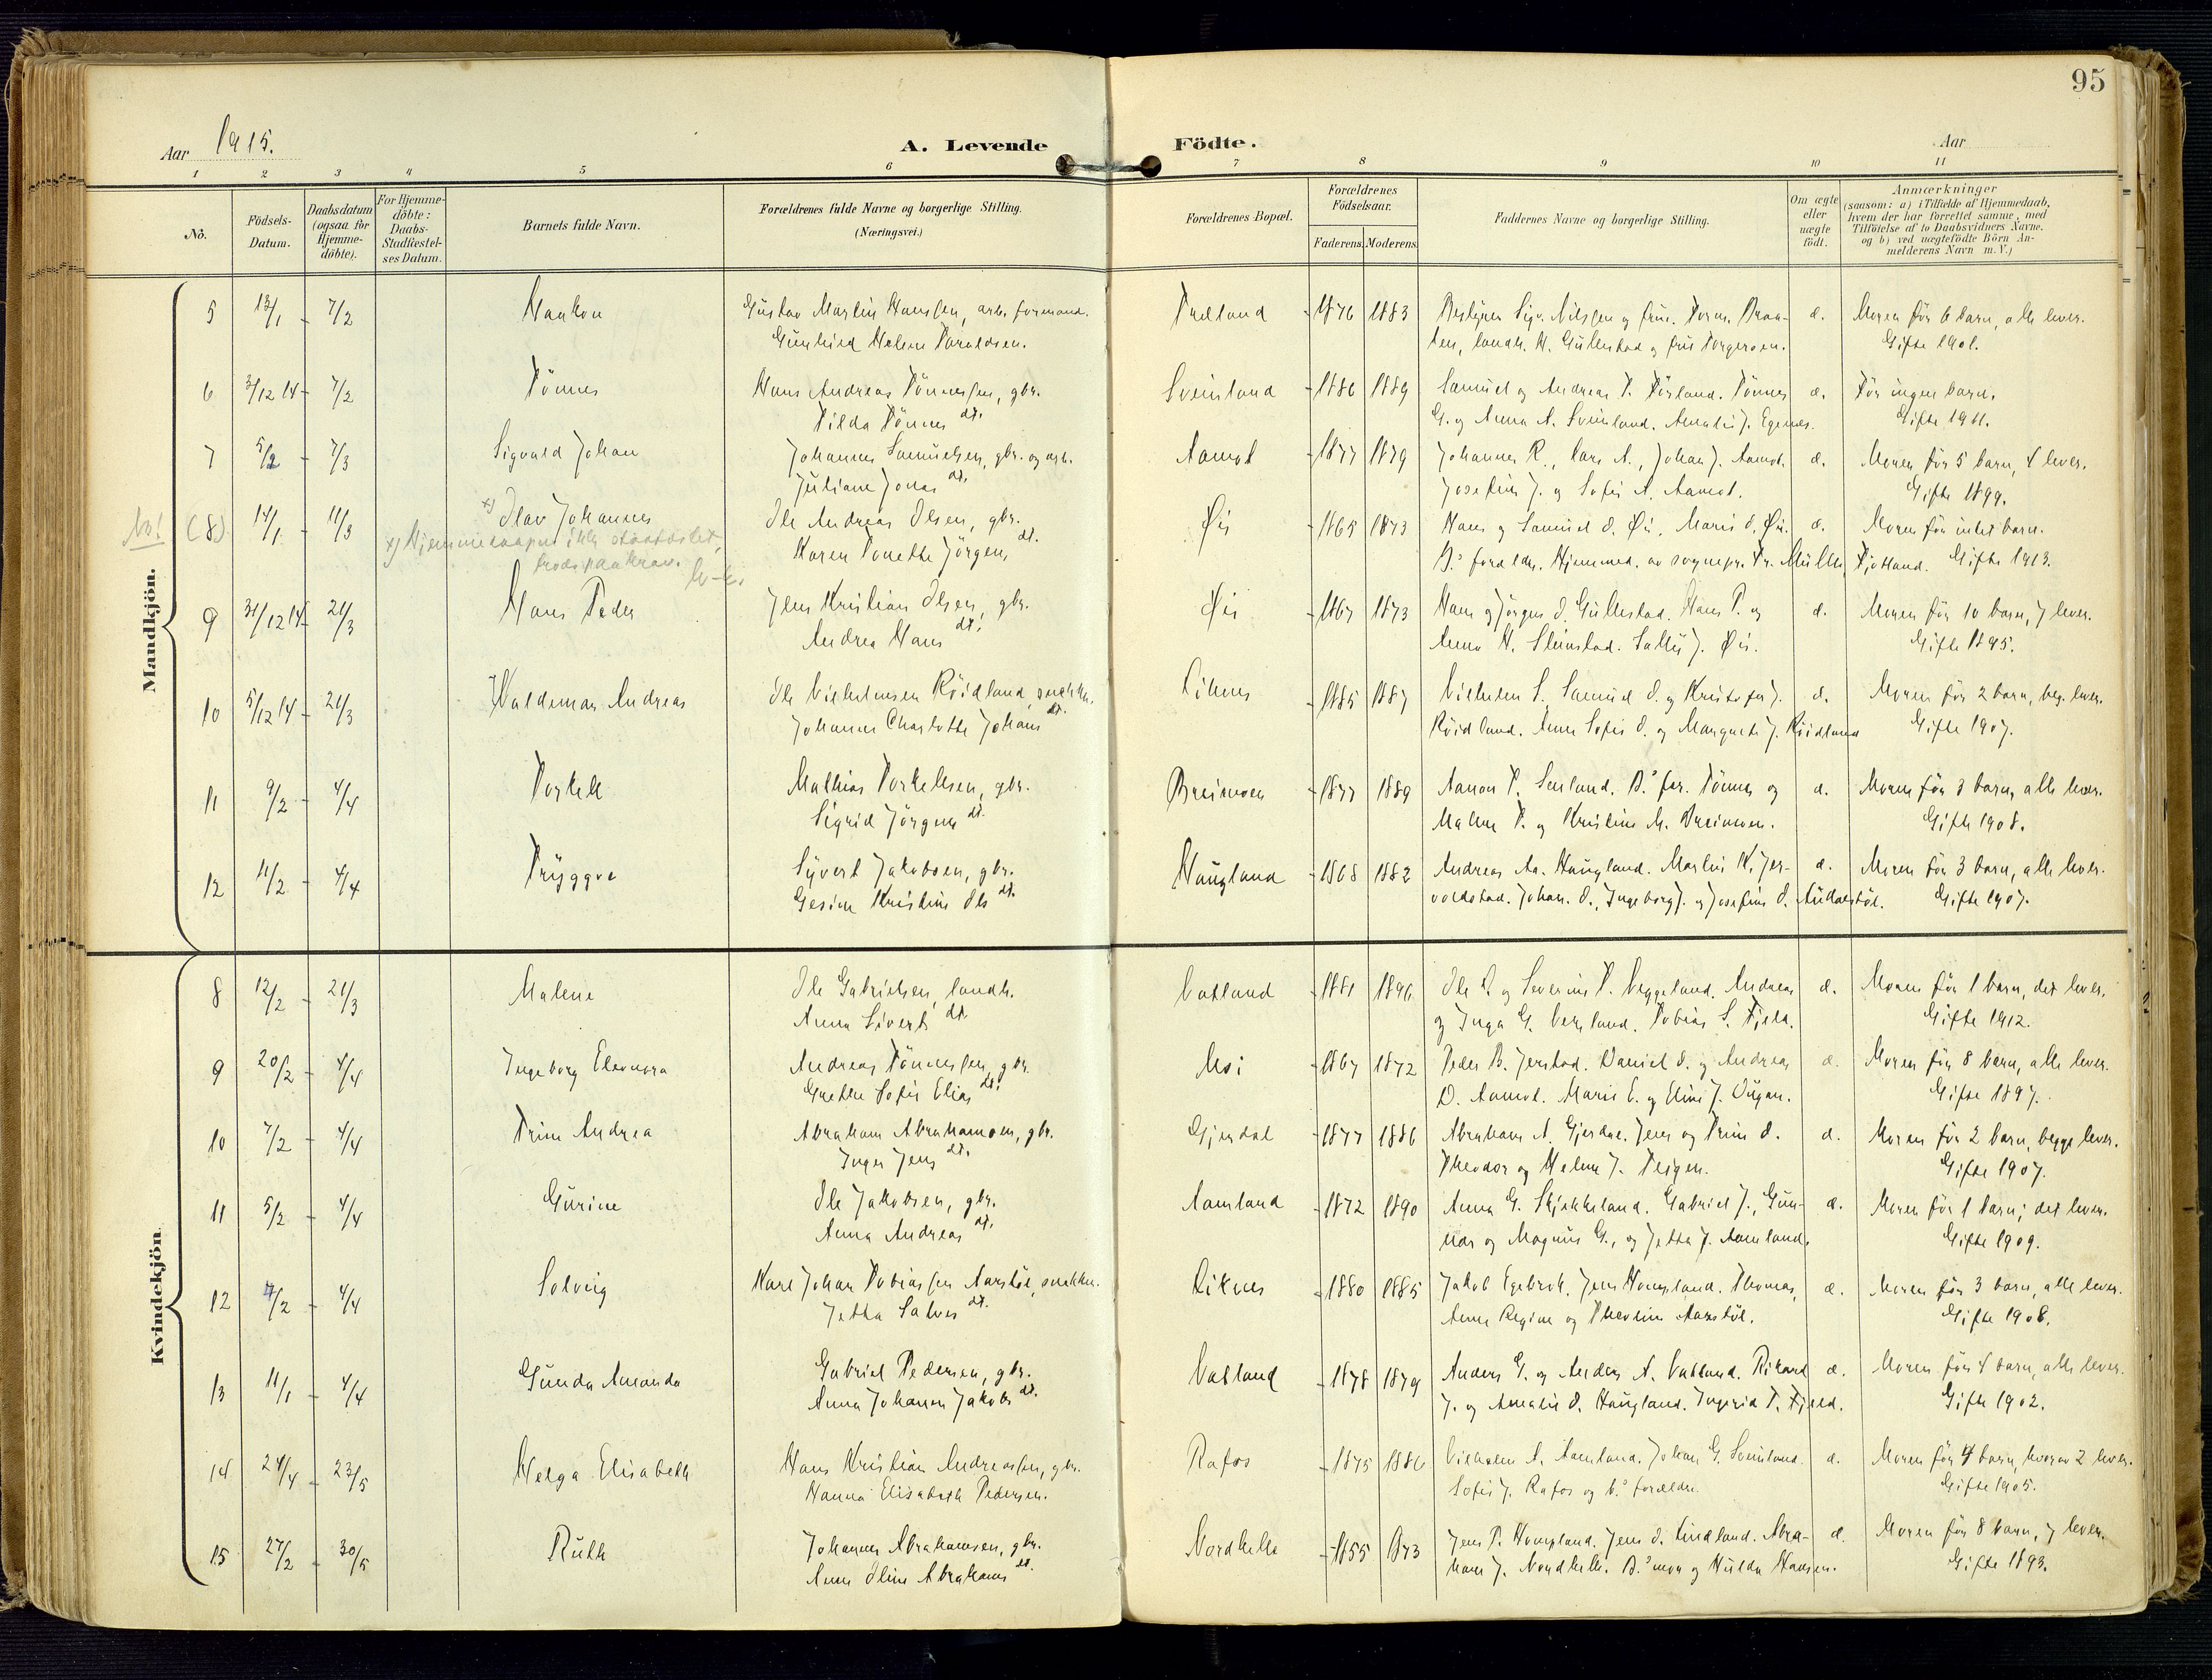 95
Aar 1915.
A. Levende Födte.
Aar
1 2 3 4 5 6 7 8 9 10 11
No. Födsels-Datum. Daabsdatum (ogsaa for Hjemme-döbte). For Hjemme-döbte: Daabs-Stadfæstel-ses Datum. Barnets fulde Navn. Forældrenes fulde Navne og borgerlige Stilling. (Næringsvei.) Forældrenes Bopæl. Forældrenes Födselsaar. Faderens. Moderens. Faddernes Navne og borgerlige Stilling. Om ægte eller uægte födt. Anmærkninger (saasom: a) i Tilfælde af Hjemmedaab, hvem der har forrettet samme, med Tilföielse af to Daabsvidners Navne. og b) ved uægtefödte Börn Anmelderens Navn m. V.)
Mandkjön.
5 13/1 - 7/2 Haakon Gustav Martin Hanssen, arb. formand. Træland 1876 1883 Bestyrer Sigv. Nilssen og fru. Torvn. Braa- æ. Moren før 6 barn, alle lever.
Gunhild Helene Toraldsen. ten, landh. H. Gullestad og fru Torgersen. Gifte 1901.
6 3/12 14 - 7/2 Tönnes Hans Andreas Tönnessen, gbr. Sveinland 1886 1889 Samuel og Andreas T. Förland. Tönnes æ. Før ingen barn.
Tilda Tönnes dt. G. og Anna A. Sveinland. Amalie J. Egenes. Gifte 1911.
7 5/2 - 7/3 Sigvald Johan Johannes Samuelsen, gbr. og arb. Aamot 1877 1879 Johannes R., Lars A., Johan J. Aamot. æ. Moren før 5 barn, 4 lever.
Juliane Jonas dt. Josefine J. og Sofie A. Aamot. Gifte 1899.
Nb! (8) 14/1 - 11/3 x) Olav Johannes Ole Andreas Olsen, gbr. Øie 1865 1873 Hans og Samuel O. Øie. Marie O. Øie. æ. Moren før intet barn.
x) Hjemmedaapen ikke stadfæstet, Karen Tonette Jörgens dt. B.s foreldre. Hjemmed. av sognepr. Fr. Müller, Fjotland. Gifte 1913.
9 31/12 14 - 21/3 Hans Peder Jens Kristian Olsen, gbr. Øie 1867 1873 Hans og Jörgen O. Gullestad. Hans P. og æ. Moren før 10 barn, 7 lever.
Andrea Hans dt. Anna H. Steinstad. Sally J. Øie. Gifte 1895.
10 5/12 14 - 21/3 Valdemar Andreas Ole Vilhelmsen Röidland, snekker. Liknes 1885 1887 Vilhelm S. Samuel O. og Kristofer J. æ. Moren før 2 barn, beg. lever.
Johanne Charlotte Johans dt. Röidland. Anne Sofie O. og Margrete J. Röidland Gifte 1907.
11 9/2 - 4/4 Torkell Mathias Torkellsen, gbr. Breimoen 1877 1889 Aanon T. Senland. B.s for. Tönnes og æ. Moren før 3 barn, alle lever.
Sigrid Jörgens dt. Malene T. og Kristine M. Breimoen. Gifte 1908.
12 11/2 - 4/4 Tryggve Syvert Jakobsen, gbr. Haugland 1868 1882 Andreas Aa. Haugland. Martin K. Jer- æ. Moren før 3 barn, alle lever.
Gesine Kristine Ols dt. voldstad. Johan O., Ingeborg J. og Josefine O. Audalstöl. Gifte 1907.
Kvindekjön.
8 12/2 - 21/3 Malene Ole Gabrielsen, landh. Vatland 1881 1896 Ole T. og Severine T. Veggeland. Andreas æ. Moren før 1 barn, det lever.
Anna Siverts dt. og Inga G. Tobias S. Fjeld. Gifte 1912.
9 20/2 - 4/4 Ingeborg Eleonora Andreas Tönnessen, gbr. Mosi 1867 1872 Peder B. Jerstad. Daniel O. og Andreas æ. Moren før 8 barn, alle lever.
Grethe Sofie Elias dt. D. Aamot. Marie E. og Eline J. Dugan. Gifte 1897.
10 7/2 - 4/4 Trine Andrea Abraham Abrahamsen, gbr. Gjerdal 1877 1886 Abraham A. Gjerdal. Jens og Trine O. æ. Moren før 2 barn, begge lever.
Inger Jens dt. Theodor og Helene J. Teigen. Gifte 1907.
11 5/2 - 4/4 Gurine Ole Jakobsen, gbr. Aamland 1872 1890 Anna G. Skjekkeland. Gabriel J., Gun- æ. Moren før 1 barn; det lever.
Anna Andreas dt. nar og Magnus G., og Jetta J. Aamland. Gifte 1909.
12 4/2 - 4/4 Solveig Karl Johan Tobiassen Aarstöl, snekker. Liknes 1880 1885 Jakob Egebrok. Jens Houpland. Thomas, æ. Moren før 3 barn, alle lever.
Jetta Salves dt. Anne Regine og Theoline Aarstöl. Gifte 1908.
13 11/1 - 4/4 Gunda Amanda Gabriel Pedersen, gbr. Vatland 1878 1879 Anders G. og Anders A. Vatland. Rikard æ. Moren før 4 barn, alle lever.
Anna Johanne Jakobs dt. J. og Amalie O. Haugland. Ingerid T. Fjeld. Gifte 1902.
14 24/4 - 23/5 Helga Elisabeth Hans Kristian Andreassen, gbr. Rafos 1875 1886 Vilhelm A. Aamland. Johan G. Sveinland. æ. Moren før 4 barn, hvorav 2 lever.
Hanna Elisabeth Pedersen. Sofie J. Rafos og b.s forældre. Gifte 1905.
15 27/2 - 30/5 Ruth Johannes Abrahamsen, gbr. Nordhelle 1855 1873 Jens P. Houpland. Jens O. Lindland. Abra- æ. Moren før 8 barn, 7 lever.
Anne Oline Abrahams dt. ham J. Nordhelle. B.s mor og Hulda Hansen. Gifte 1893.